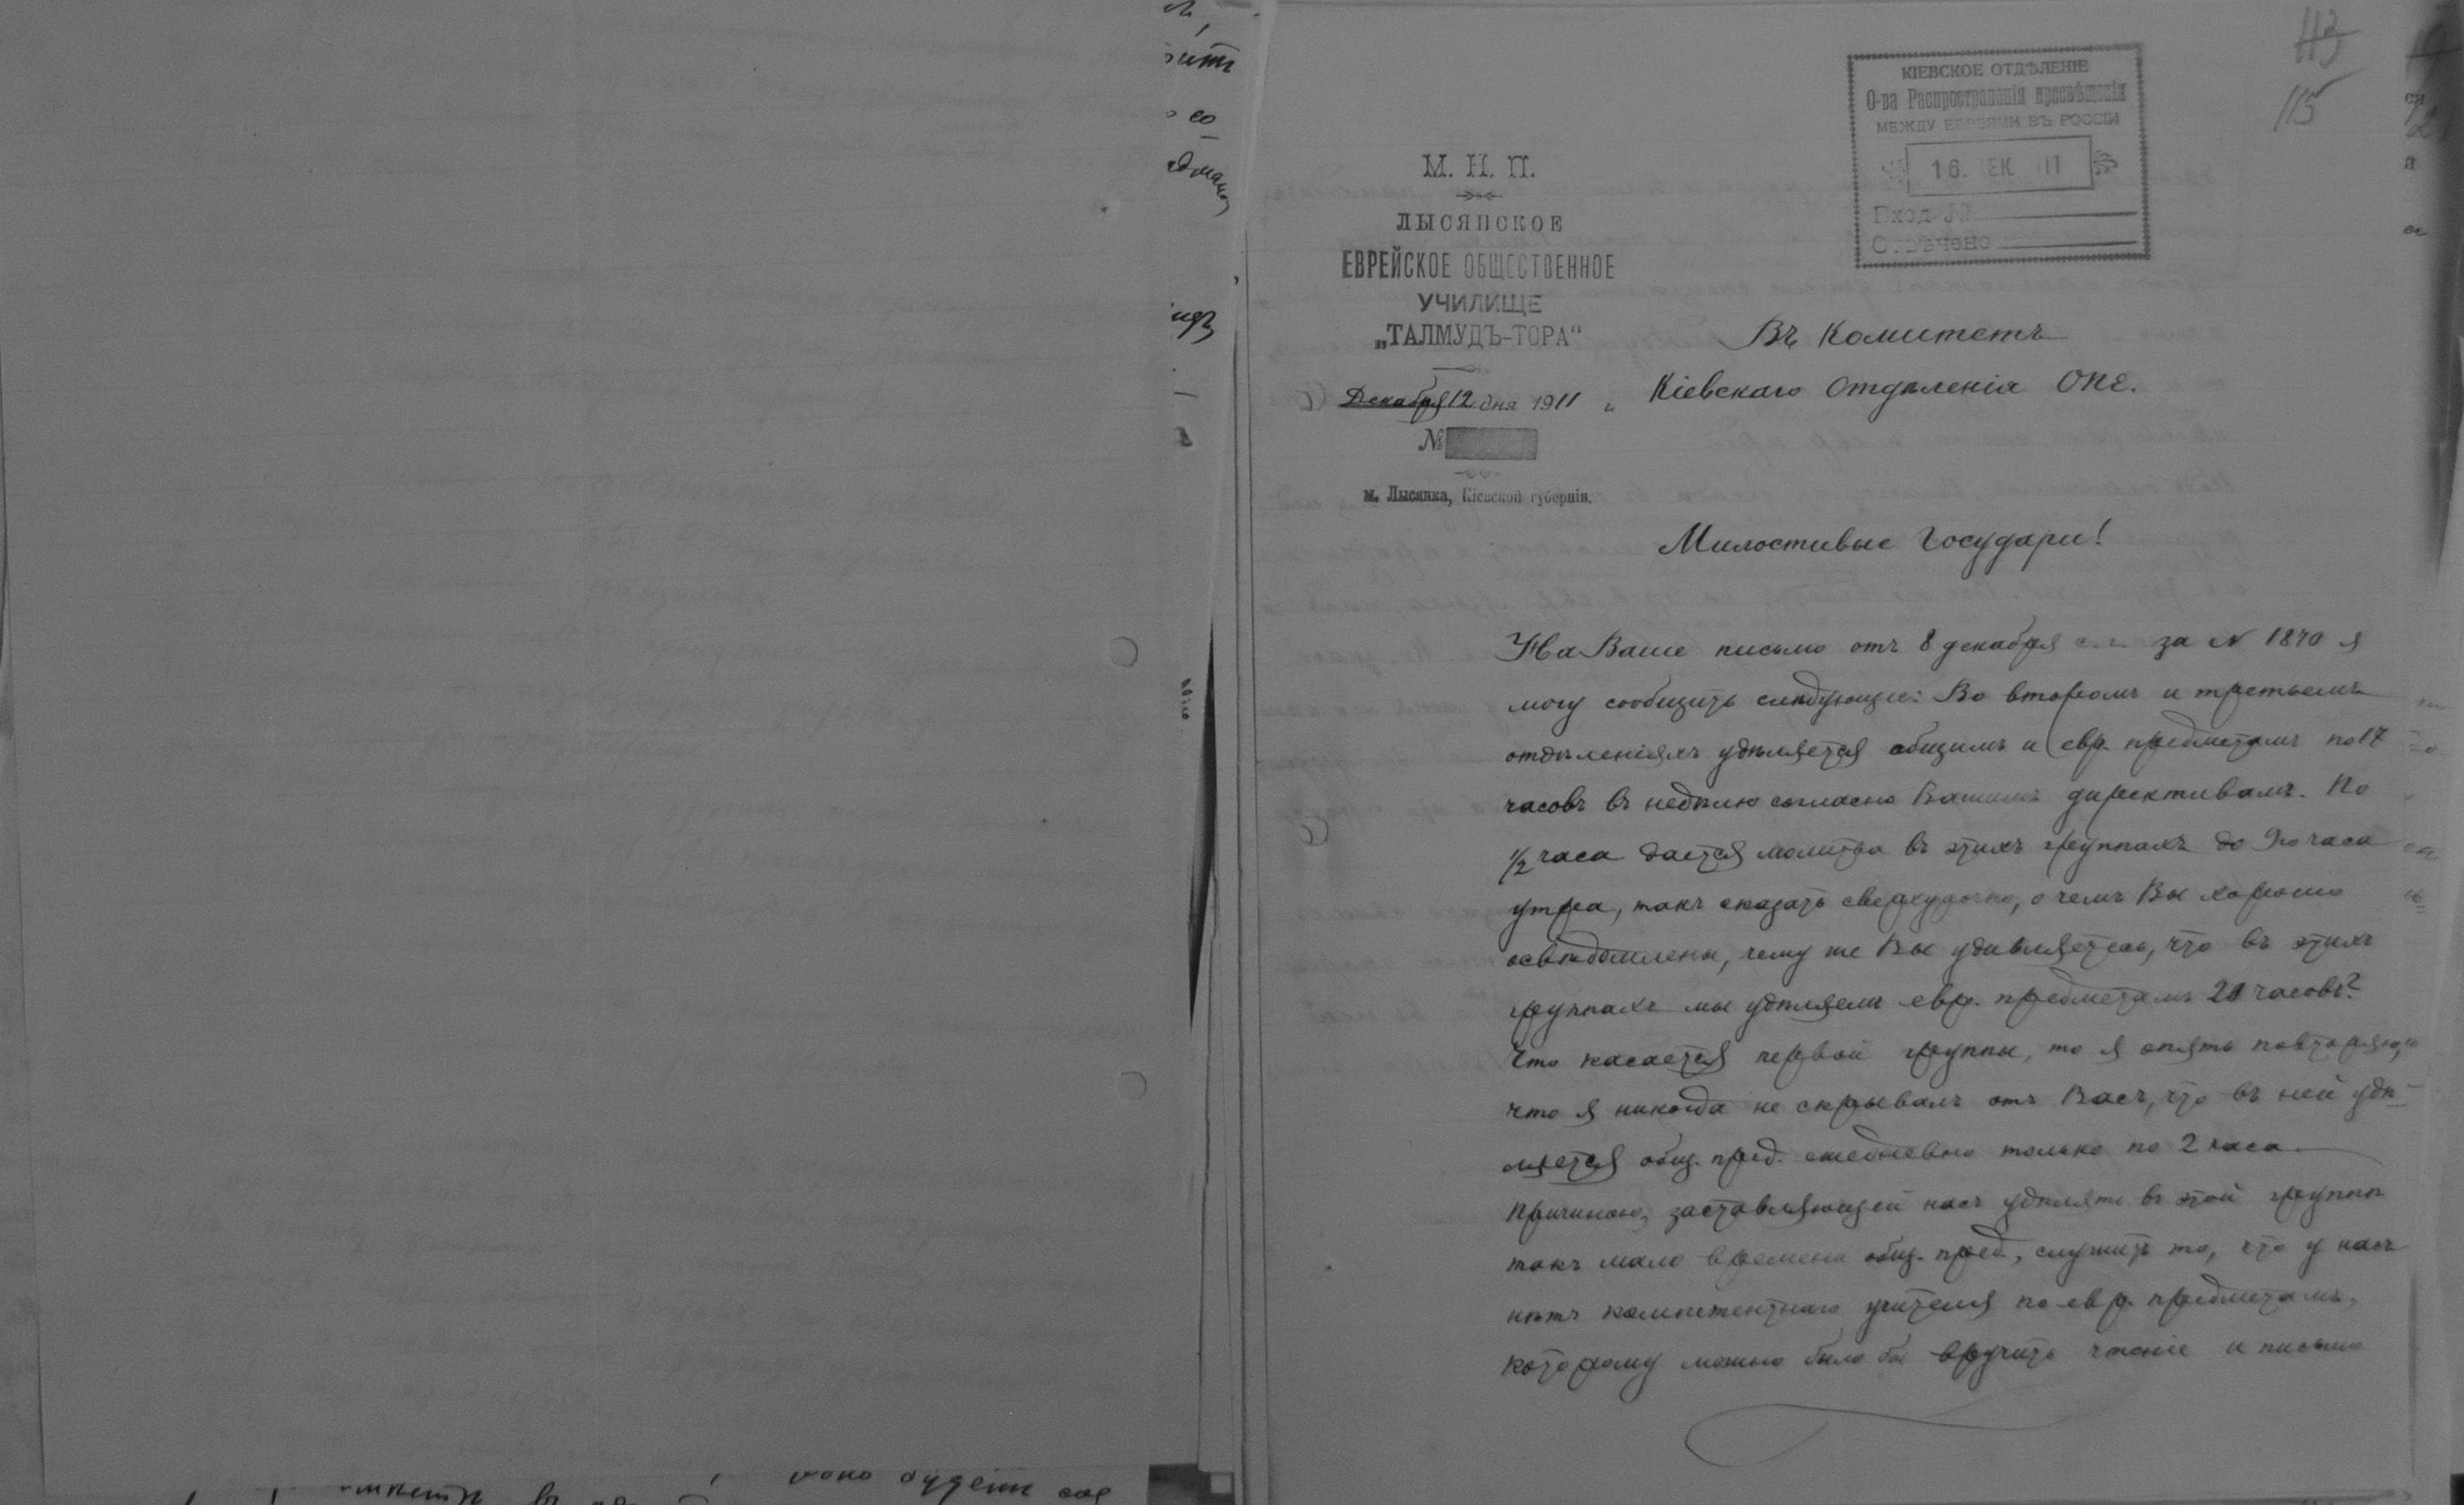 113
115
КІЕВСКОЕ ОТДѢЛЕНІЕ
О-ва Распространенія просвѣщенія
МЕЖДУ ЕВРЕЯМИ ВЪ РОССІИ
16. ДЕК
Вход №
Отвѣчено
М. Н. П.
ЛЫСЯНСКОЕ
ЕВРЕЙСКОЕ ОБЩЕСТВЕННОЕ
УЧИЛИЩЕ
„ТАЛМУДЪ-ТОРА“
Декабря 12 дня 1911 г.
№
м. Лысянка, Кіевской губерніи.
Въ Комитетъ
Кіевскаго Отдѣленія ОПЕ.
Милостивые Государи!
На Ваше письмо отъ 8 декабря с.г. за N 1870 я
могу сообщить слѣдующее: Во второмъ и третьемъ
отдѣленіяхъ удѣляется общимъ и евр. предметамъ по 17
часовъ въ недѣлю согласно Вашимъ директивамъ. По
1/2 часа дается молитва въ этихъ группахъ до 9го часа
утра, такъ сказать сверхурочно, о чемъ Вы хорошо
освѣдомлены, чему же Вы удивляетесь, что въ этихъ
группахъ мы удѣляемъ евр. предметамъ 20 часовъ?
Что касается первой группы, то я опять повторяю,
что я никогда не скрывалъ отъ Васъ, что въ ней удѣ-
ляется общ. пред. ежедневно только по 2 часа.
Причиною, заставляющей насъ удѣлять въ этой группѣ
такъ мало времени общ. пред., служитъ то, что у насъ
нѣтъ компетентнаго учителя по евр. предметамъ,
которому можно было бы вручить чтеніе и письмо